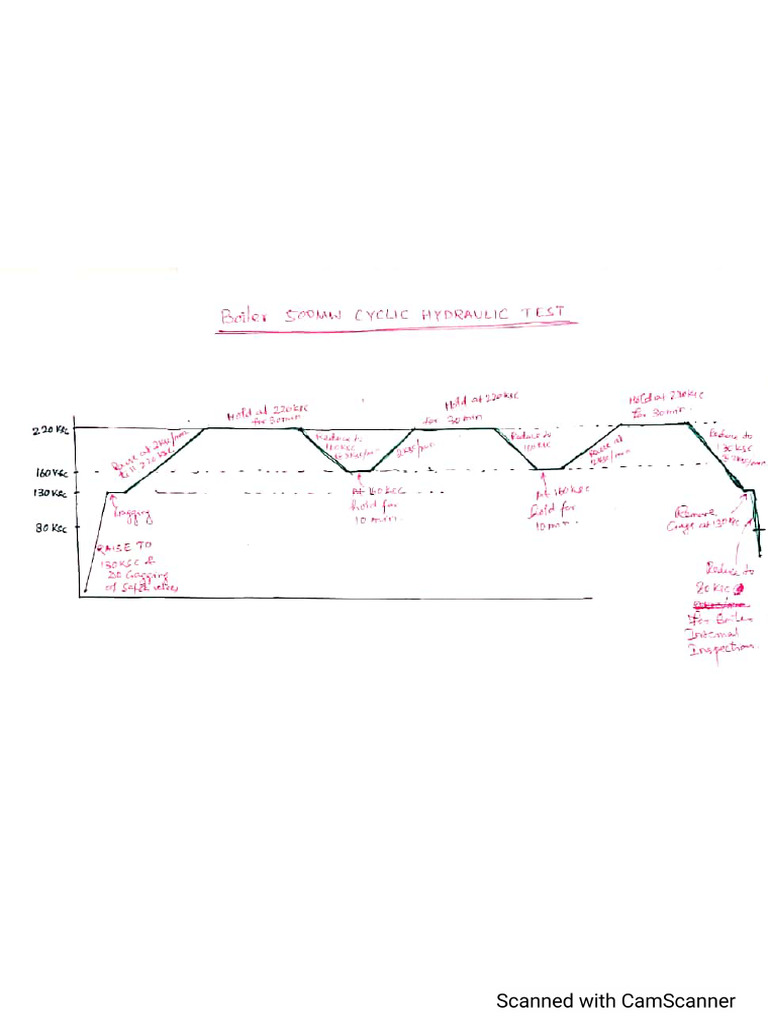 Boiler 500MW CYCLIC HYDRAULIC TEST
220 KSC
160 KSC
130 KSC
80 KSC
RAISE TO
130KSC &
DO Gagging
of Safety valves
Gagging
Raise at 2KSC/min
till 220 KSC
Hold at 220KSC
for 30min
Reduce to
160KSC
2KSC/min
At 160KSC
hold for
10 min.
2KSC/min
Hold at 220KSC
for 30 min
Reduce to
160KSC
At 160KSC
hold for
10min.
Raise at
2KSC/min
Hold at 220KSC
for 30min.
Reduce to
130KSC
2KSC/min
Remove
Gags at 130KSC
Reduce to
80KSC
for Boiler
Internal
Inspection.
Scanned with CamScanner